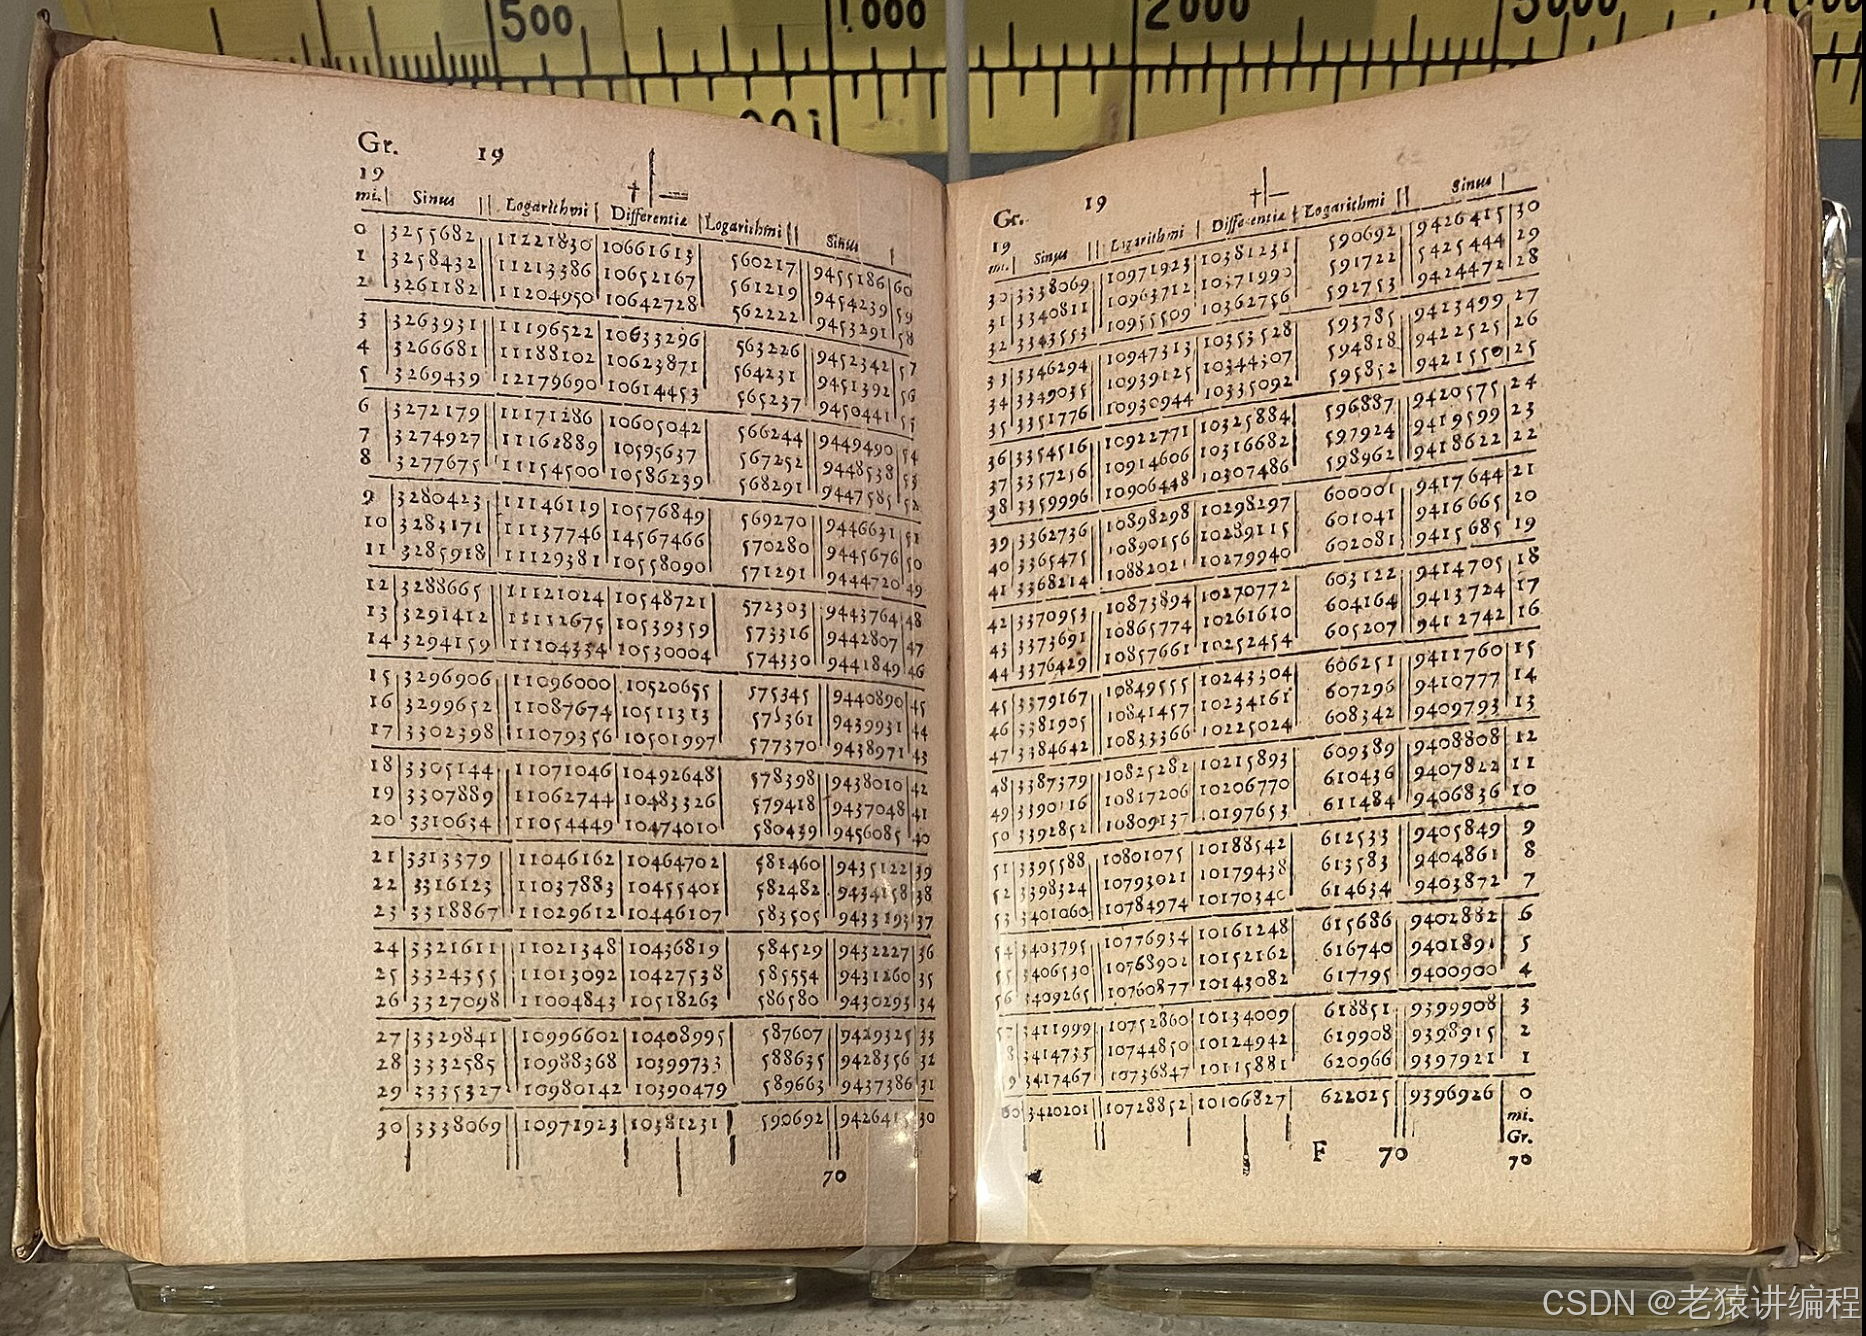 500 1000 2000
Gr. 19
19
mi. Sinus Logarithmi Differentiæ Logarithmi Sinus
0 3255682 11221830 10661613 560217 9455186 60
1 3258432 11213386 10652167 561219 9454239 59
2 3261182 11204950 10642728 562222 9453291 58
3 3263931 11196522 10633296 563226 9452342 57
4 3266681 11188102 10623871 564231 9451392 56
5 3269439 12179690 10614453 565237 9450441 55
6 3272179 11171286 10605042 566244 9449490 54
7 3274927 11162889 10595637 567252 9448538 53
8 3277675 11154500 10586239 568291 9447585 52
9 3280423 11146119 10576849 569270 9446631 51
10 3283171 11137746 14567466 570280 9445676 50
11 3285918 11129381 10558090 571291 9444720 49
12 3288665 11121024 10548721 572303 9443764 48
13 3291412 11112675 10539359 573316 9442807 47
14 3294159 11104334 10530004 574330 9441849 46
15 3296906 11096000 10520655 575345 9440890 45
16 3299652 11087674 10511313 575361 9439931 44
17 3302398 11079356 10501997 577370 9438971 43
18 3305144 11071046 10492648 578398 9438010 42
19 3307889 11062744 10483326 579418 9437048 41
20 3310634 11054449 10474010 580439 9456085 40
21 3313379 11046162 10464702 581460 9435122 39
22 3316123 11037883 10455401 582482 9434158 38
23 3318867 11029612 10446107 583505 9433193 37
24 3321611 11021348 10436819 584529 9432227 36
25 3324355 11013092 10427538 585554 9431260 35
26 3327098 11004843 10518263 586580 9430293 34
27 3329841 10996602 10408995 587607 9429325 33
28 3332585 10988368 10399733 588635 9428356 32
29 3335327 10980142 10390479 589663 9437386 31
30 3338069 10971923 10381231 590692 942641 30
70
Gr. 19
19
mi. Sinus Logarithmi Differentiæ Logarithmi Sinus
30 3338069 10971923 10381231 590692 9426415 30
31 3340811 10963712 10371990 591722 5425444 29
32 3343553 10955509 10362756 592753 9424472 28
33 3346294 10947313 10353528 593785 9423499 27
34 3349035 10939125 10344307 594818 9422525 26
35 3351776 10930944 10335092 595852 9421550 25
36 3354516 10922771 10325884 596887 9420575 24
37 3357256 10914606 10316682 597924 9419599 23
38 3359996 10906448 10307486 598962 9418622 22
39 3362736 10898298 10298297 600001 9417644 21
40 3365475 10890156 10289115 601041 9416665 20
41 3368214 1088202 10279940 602081 9415685 19
42 3370953 10873894 10270772 603122 9414705 18
43 3373691 10865774 10261610 604164 9413724 17
44 3376429 10857661 10252454 605207 9412742 16
45 3379167 10849555 10243304 606251 9411760 15
46 3381905 10841457 10234161 607296 9410777 14
47 3384642 10833366 10225024 608342 9409793 13
48 3387379 10825282 10215893 609389 9408808 12
49 3390116 10817206 10206770 610436 9407822 11
50 3392852 10809137 10197653 611484 9406836 10
51 3395588 10801075 10188542 612533 9405849 9
52 3398324 10793021 10179438 613583 9404861 8
53 3401060 10784974 10170340 614634 9403872 7
54 3403795 10776934 10161248 615686 9402882 6
55 3406530 10768902 10152162 616740 9401891 5
56 3409265 10760877 10143082 617795 9400900 4
57 3411999 10752860 10134009 618851 9399908 3
8 3414733 10744850 10124942 619908 9398915 2
9 3417467 10736847 10115881 620966 9397921 1
60 3420201 10728852 10106827 622025 9396926 0
mi.
Gr.
F 70 70
CSDN @老猿讲编程